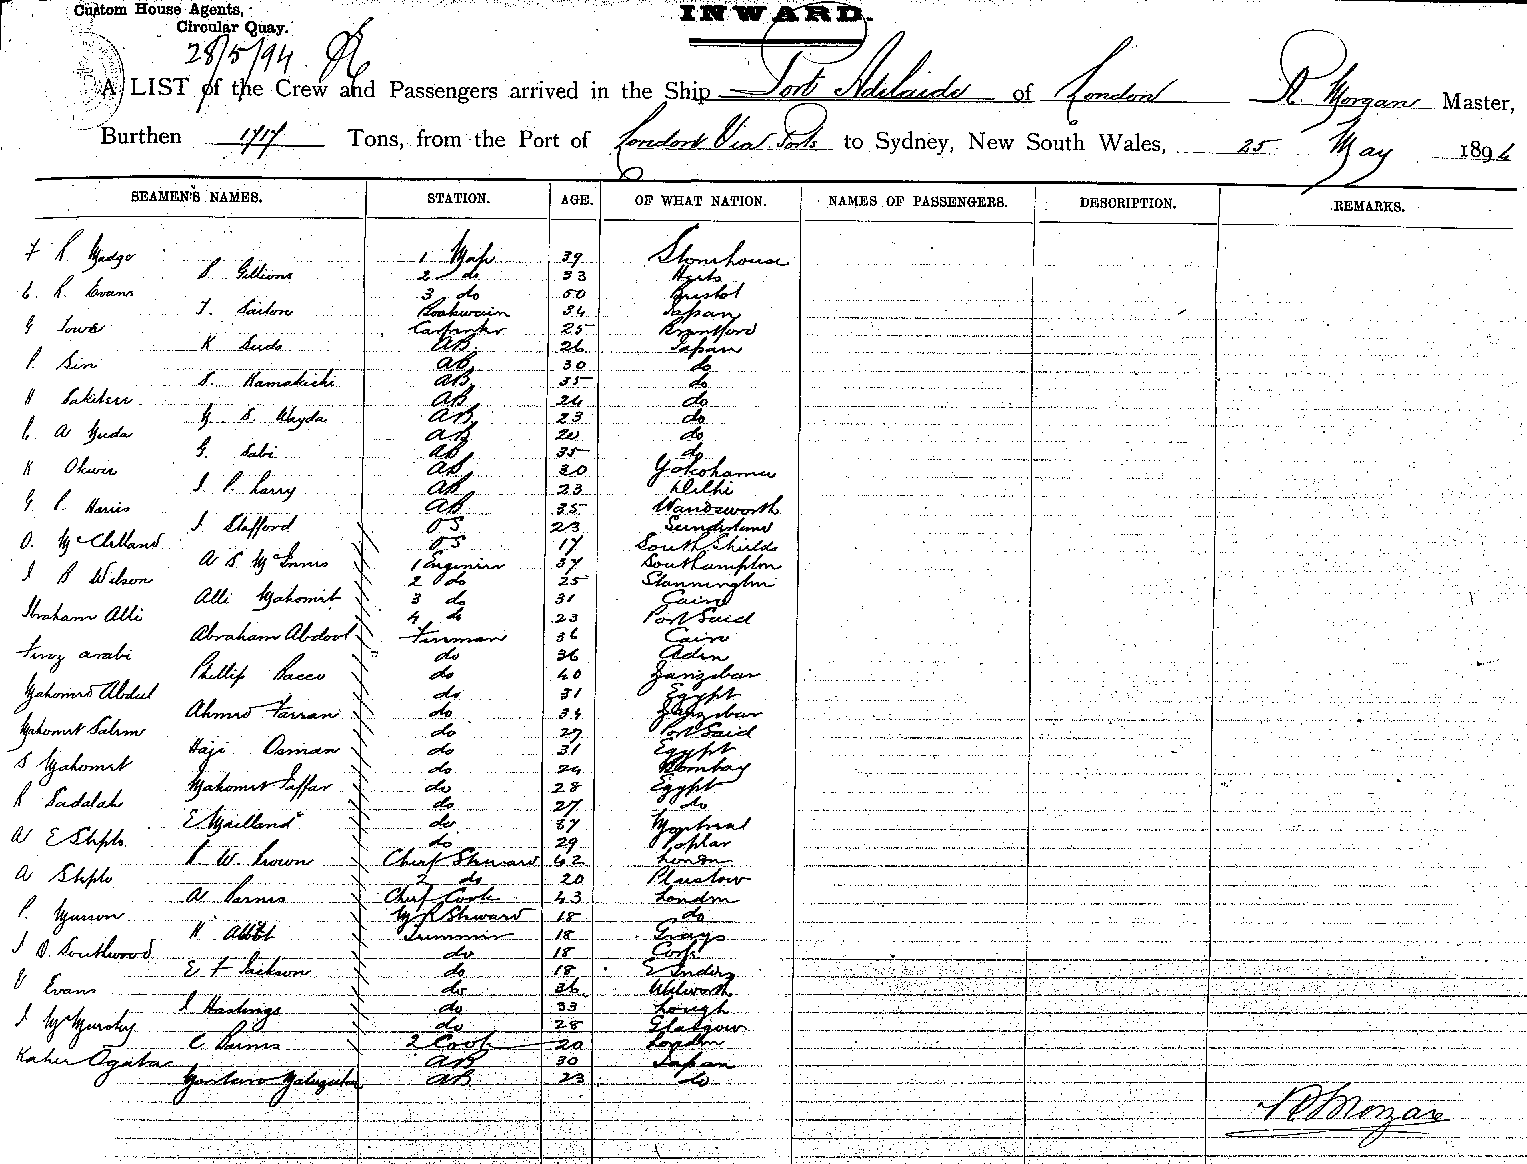 Custom House Agents,
Circular Quay.
INWARD.
28/5/94
A LIST of the Crew and Passengers arrived in the Ship Port Adelaide of London R Morgan Master,
Burthen 1717 Tons, from the Port of London Via Ports to Sydney, New South Wales, 25 May 1894
SEAMEN'S NAMES. STATION. AGE. OF WHAT NATION. NAMES OF PASSENGERS. DESCRIPTION. REMARKS.
F R Madge 1 Mate 39 Stonehouse
S Gillions 2 do 33 Herts
E R Evans 3 do 50 Bristol
Boatswain 34 Japan
G Carpenter 25 Brentford
K Suda AB 26 Japan
AB 30 do
S. Hamakichi AB 35 do
H AB 24 do
AB 23 do
AB do
G. Sabi AB 35 do
K AB 30 Yokohama
J P Larry AB 23 Delhi
G P Harris AB 35 Wandsworth
J Stafford OS 23 Sunderland
D. McClelland OS 17 South Shields
A S McInnis 1 Engineer 37 Southampton
J B Wilson 2 do 25 Stannington
Alli Mahomet 3 do 31 Cairo
Ibraham Alli 4 do 23 Port Said
Abraham Abdool Fireman 36 Cairo
Feroz Arabi do 36 Aden
Phillip Pacco do 40 Zanzibar
Mahomed Abdul do 31 Egypt
Ahmed Farran do 34 Zanzibar
Mahomet Salem do 27 Port Said
Haji Osman do 31 Egypt
S Mahomet do 24 Bombay
Mahomet Jaffar do 28 Egypt
R Sadalah do 27 do
E Mailland do 37 Montreal
A E Stepto do 29 Poplar
W. Brown Chief Steward 42 London
A Stepto 2 do 20 Plaistow
A Barnes Chief Cook 43 London
P. Musson M R Steward 18 do
H Abbot Trimmer 18 Grays
J D Southwood do 18 Cork
E F Jackson do 18 E Indies
Evans do 36 Walworth
J Hastings do 33 Lough
J McMurchy do 28 Glasgow
C Burns 2 Cook 20 London
Ogata AB 30 Japan
AB 23 do
R Morgan